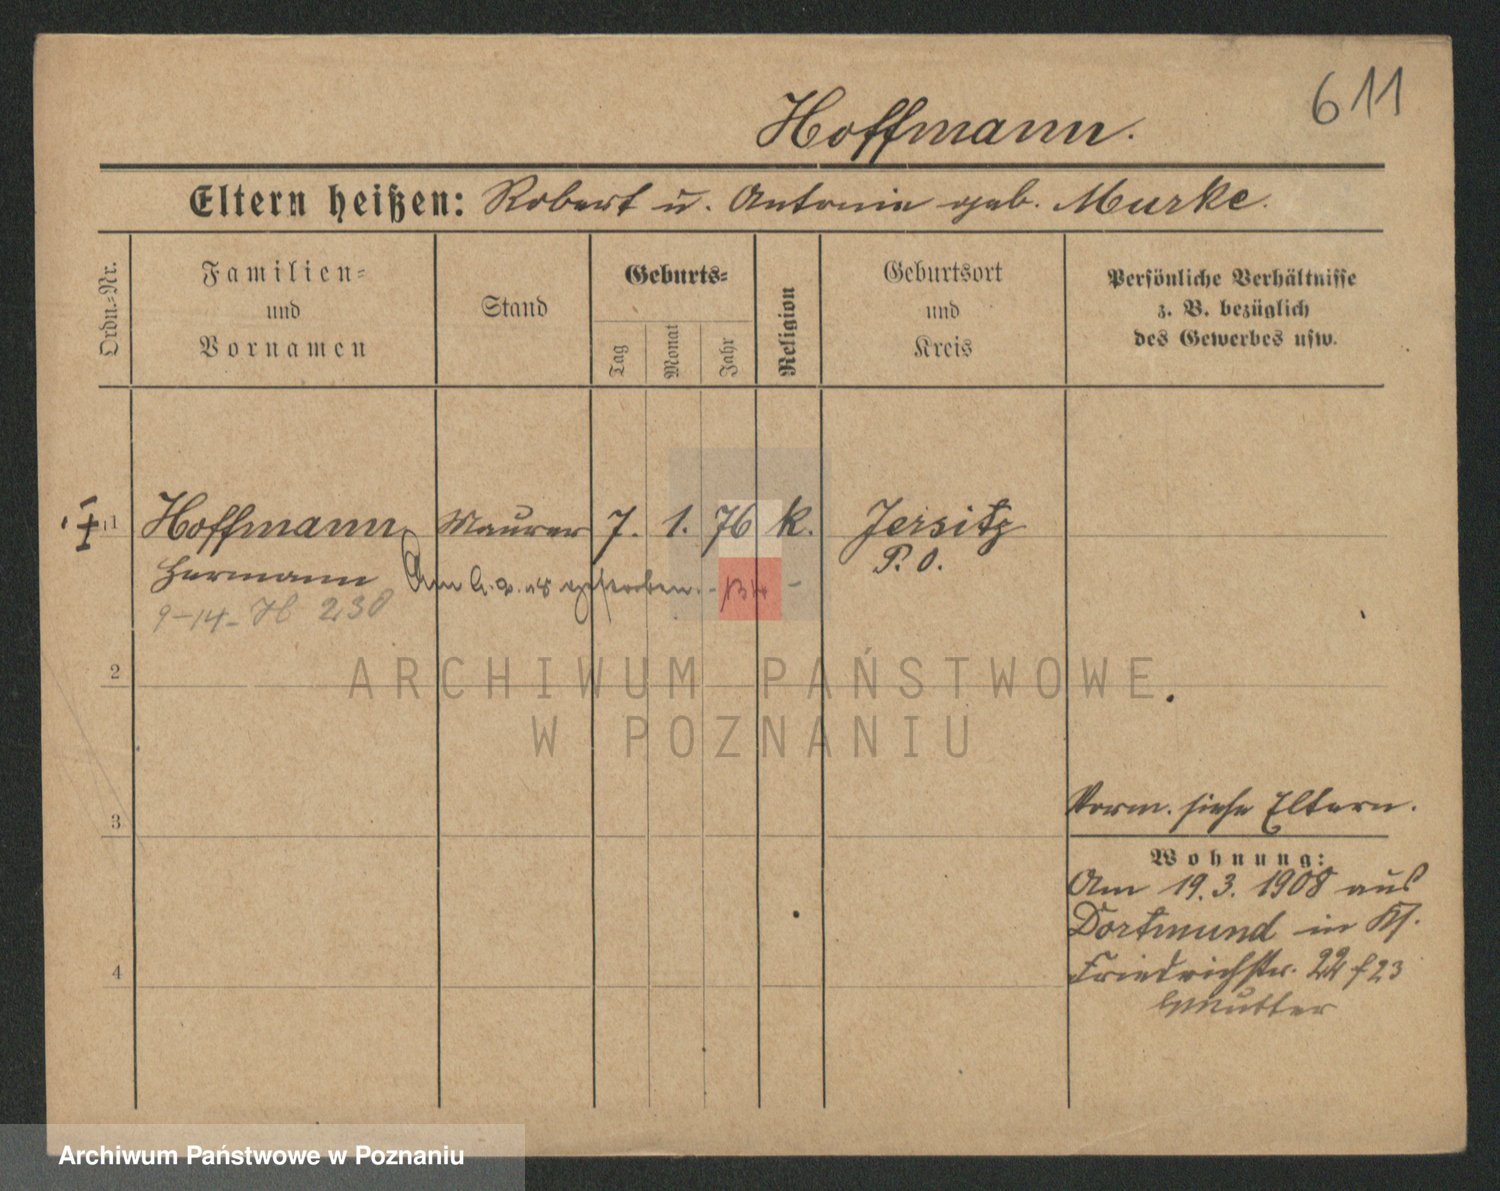 611
Hoffmann.
Eltern heißen: Robert u. Antonie geb. Murke.
Ordn.-Nr.
Familien-
und
Vornamen
Stand
Geburts-
Tag
Monat
Jahr
Religion
Geburtsort
und
Kreis
Persönliche Verhältnisse
z. B. bezüglich
des Gewerbes usw.
1 Hoffmann, Maurer 7. 1. 76 k. Jersitz
Hermann P. O.
Am gestorben.
9-14- H 230
2
ARCHIWUM PAŃSTWOWE
W POZNANIU
3
Vorm. siehe Eltern.
Wohnung:
Am 19.3. 1908 aus
Dortmund in
4
Friedrichstr. 22 f 23
Mutter
Archiwum Państwowe w Poznaniu